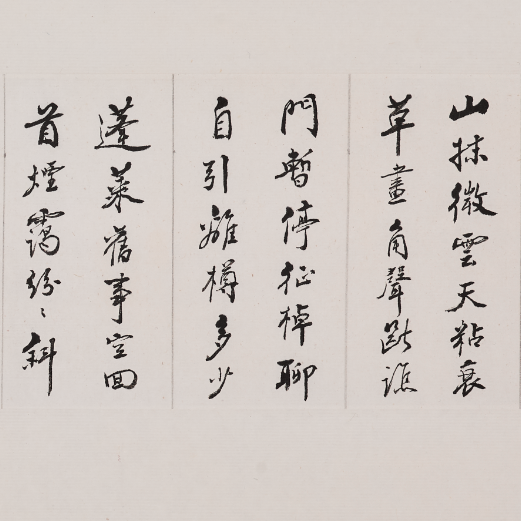 山抹微雲天粘衰
草畫角聲斷譙
門暫停征棹聊
自引離樽多少
蓬萊舊事空回
首煙靄紛〻斜